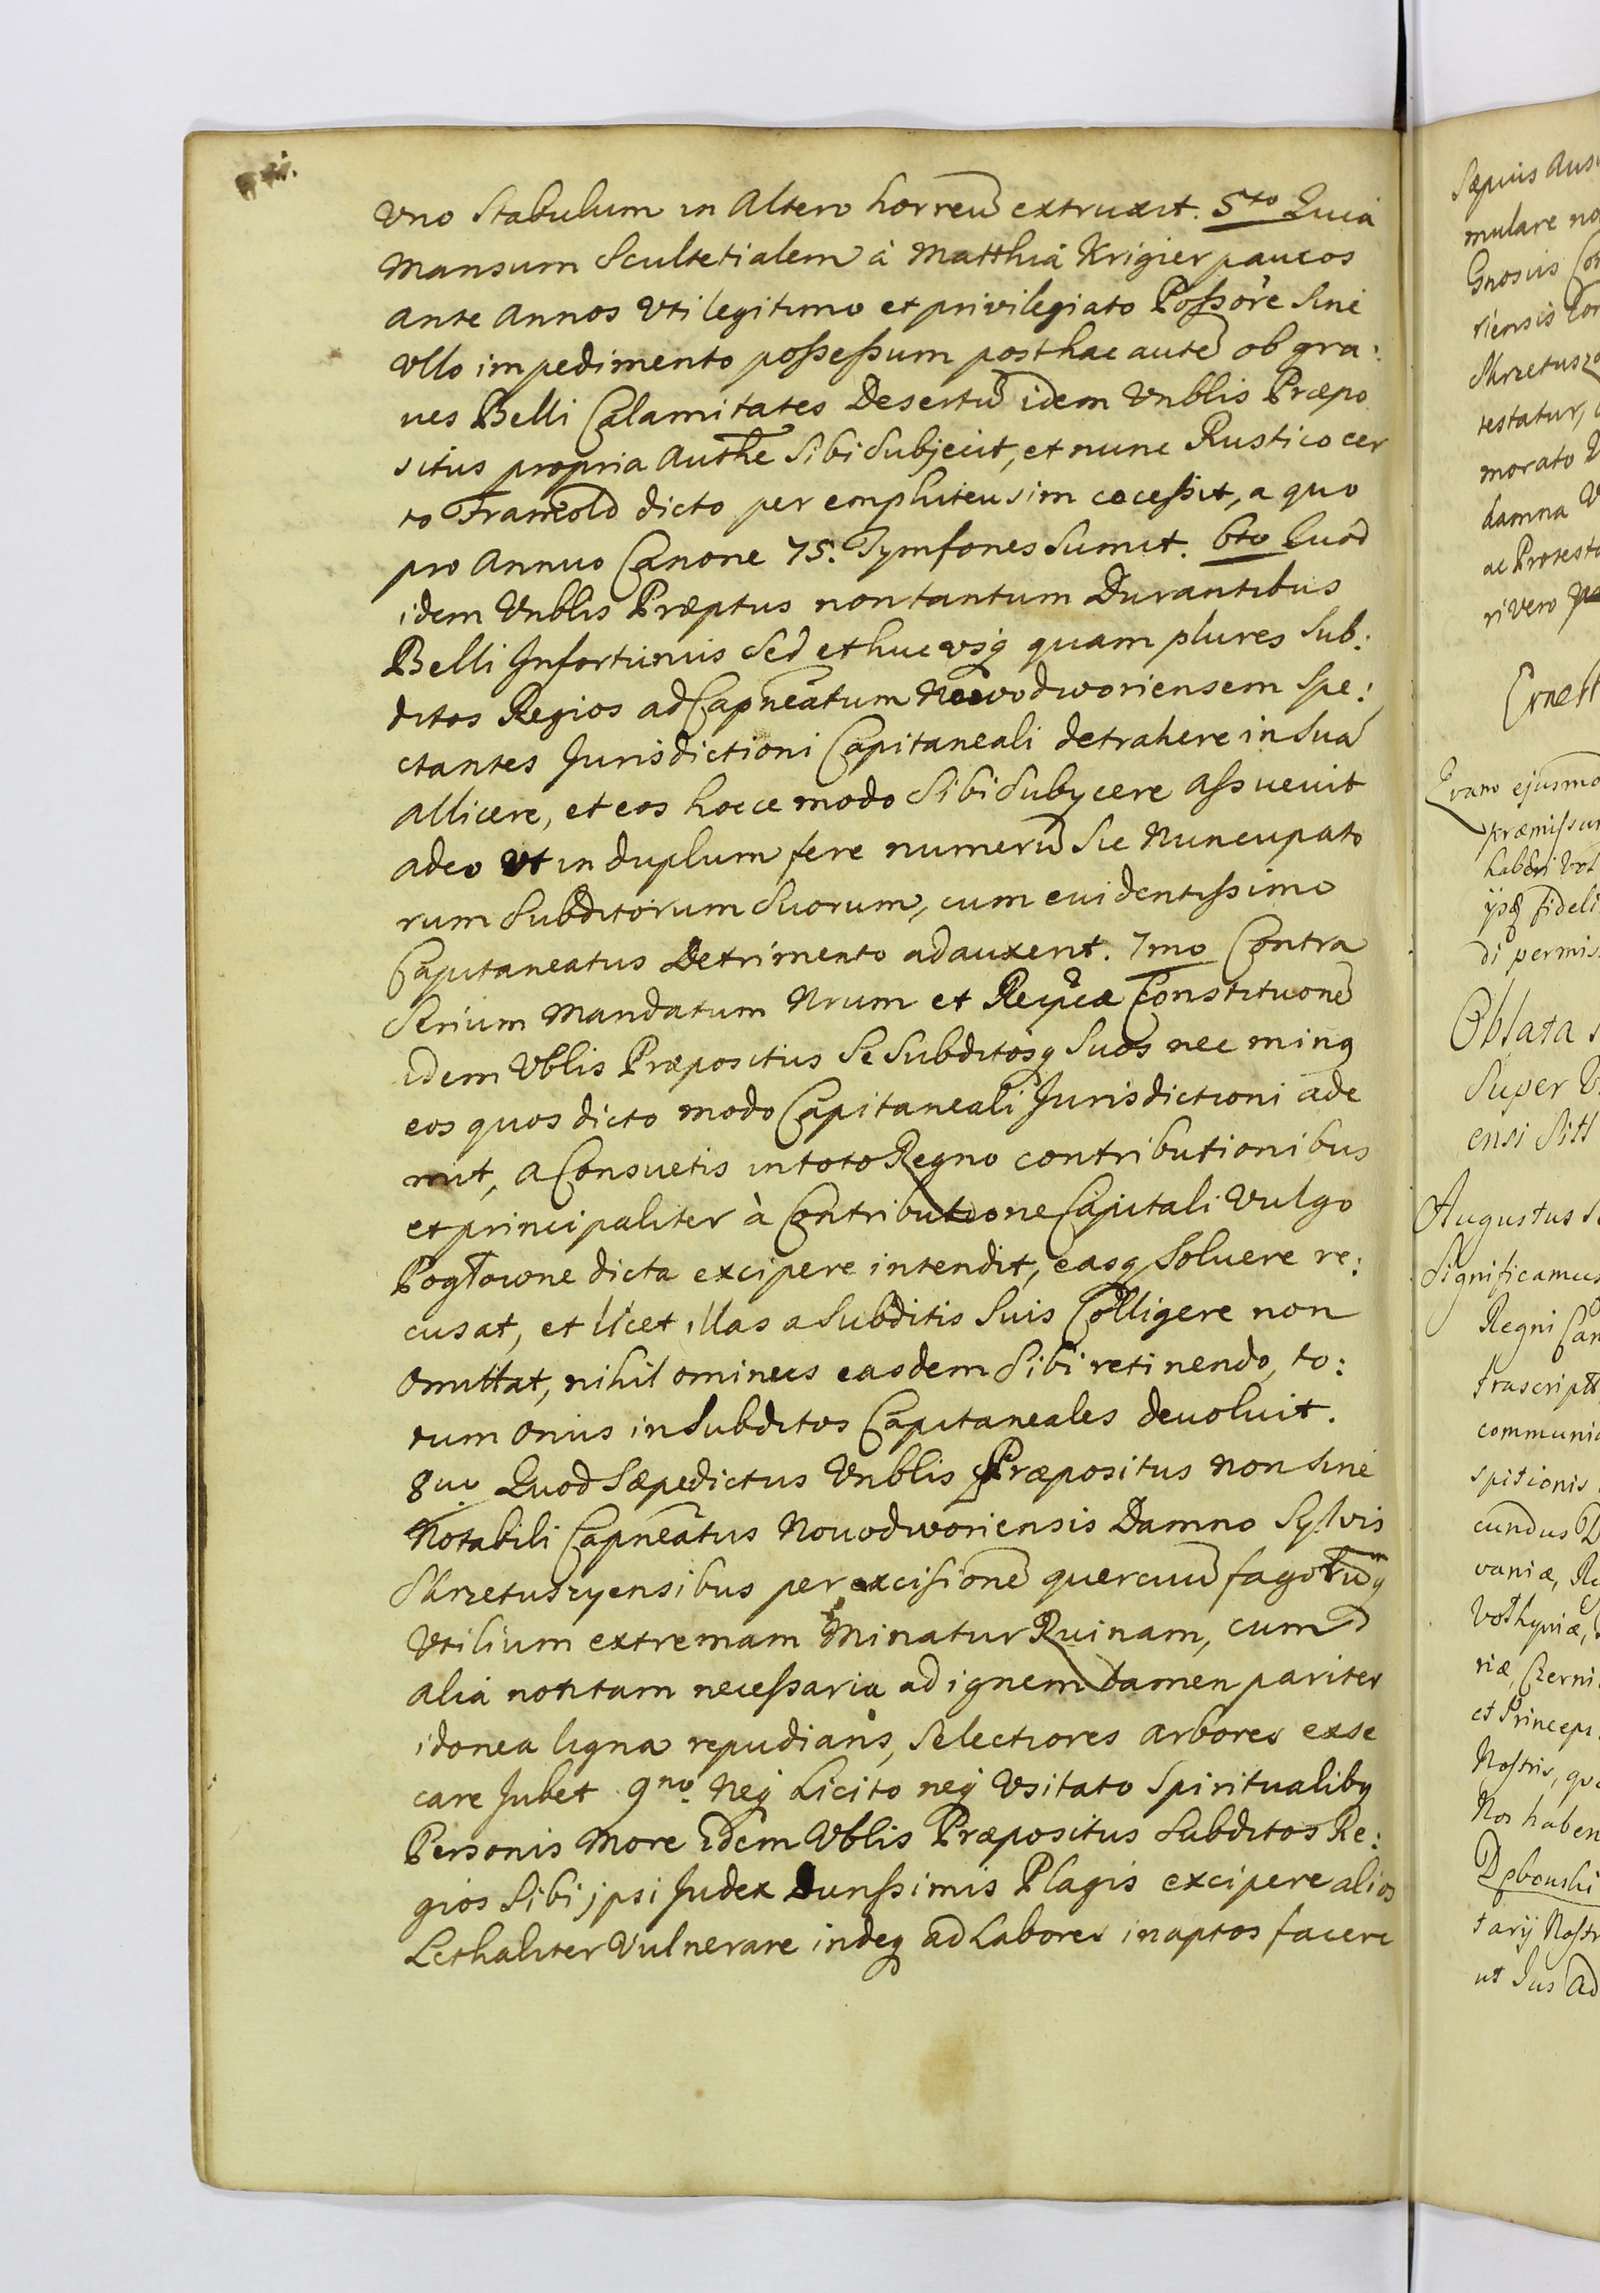 Uno Stabulum in Altero horreũ extruxit. 5to Quia
Mansum Scultetialem à Matthiâ Krigier paucos
ante Annos Uti legitimo et privilegiato Possõre Sine
Ullo impedimento possessum posthac autẽ ob gra:
ues Belli Calamitates Desertũ idem Vnblis Præpo
situs propria Authẽ Sibi Subjecit, et nunc Rustico cer
to Framẽold dicto per emphiteusim cõcessit, a quo
pro Annuo Canone 75. Tymfones Sumit. 6to Quod
idem Vnblis Præptus non tantum Durantibus
Belli Infortunijs Sed et huc usq quam plures Sub:
ditos Regios ad Capneãtum Nowodworiensem Spe:
ctantes Jurisdictioni Capitaneali detrahere in Suã
Allicere, et eos hocce modo Sibi Subÿcere Assueuit
adeo Ut in duplum fere numerũ Sic Nuncupato
rum Subditorum Suorum, cum euidentissimo
Capitaneatus Detrimento adauxerit. 7mo Contra
Serium Mandatum Nrum et Reipcæ Constitutionẽ
idem Vblis Præpositus Se Subditosq Suos nec minq
eos quos dicto modo Capitaneali Jurisdictioni ade
mit, a Consuetis in toto Regno contributionibus
et principaliter à Contributione Capitali Vulgo
Pogłowne dicta excipere intendit, easq Soluere re:
cusat, et licet illas a Subditis Suis Colligere non
Omittat, nihil ominus easdem Sibi retinendo, to:
tum Onus in Subditos Capitaneales deuoluit.
8uo Quod Sæpedictus Vnblis Præpositus Non Sine
Notabili Capneãtus Nouodworiensis Damno Sylvis
Skrzetuszyensibus per excisionẽ quercuũ fagorũq
Utilium extremam Minatur Ruinam, cum
Alia non tam necessaria ad ignem tamen pariter
idonea ligna repudians, Selectiores Arbores exse
care Jubet 9no. Neq Licito neq Usitato Spiritualibq
Personis More idem Vblis Præpositus Subditos Re:
gios Sibi jpsi Judex Durissimis Plagis excipere alios
Lethaliter Vulnerare indeq ad Labores inaptos facere
Sæpius
mulare
Gnosus
riensis
testatur,
morato
damna
ac
ri Vero
Evano ejusmo
habéri
fideli
di permis
Oblata
Super
ensi Sitt
Augustus
Significamus
Regni Can
communi
spitionis
cundus
vaniæ,
riæ, Czerni
et Princeps
Nostris,
Nos haben
Dębouski
tarij Nostr
ut Jus ad